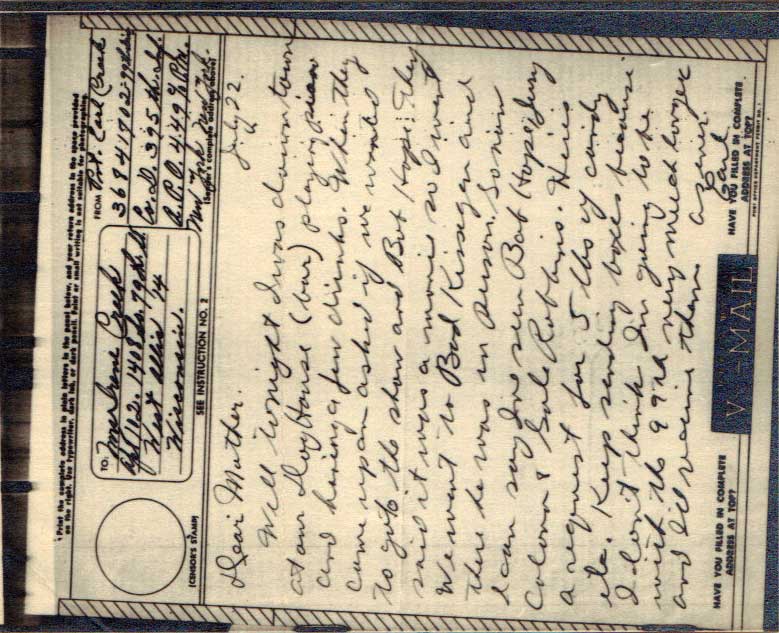 Print the complete address in plain letters in the panel below, and your return address in the space provided
on the right. Use typewriter, dark ink, or dark pencil. Faint or small writing is not suitable for photographing.
TO:
Mrs Irene Creek
Apt 12. 1408 So. 79th St
West Allis 14
Wisconsin.
FROM
Pvt. Earl Creek
36941702-99th Div
Co. D. 395th Inf.
A.P.O. 449 % P.M.
New York New York
(Sender's complete address above)
(CENSOR'S STAMP)
SEE INSTRUCTION NO. 2
July 22.
Dear Mother.
Well tonight I was down town
at our Dog House (bar) playing piano
and having a few drinks. When they
came up an asked if we wanted
to go to the show and Bob Hope. They
said it was a movie so I went
We went to Bad Kissegan and
there he was in person. So now
I can say Ive seen Bob Hope, Jerry
Colonna & Gale Robbins. Here's
a request for 5 lbs of candy
etc. Keep sending boxes because
I don't think I'm going to be
with the 99th very much longer
and I'll receive them
as ever
Earl
HAVE YOU FILLED IN COMPLETE
ADDRESS AT TOP?
V-MAIL
HAVE YOU FILLED IN COMPLETE
ADDRESS AT TOP?